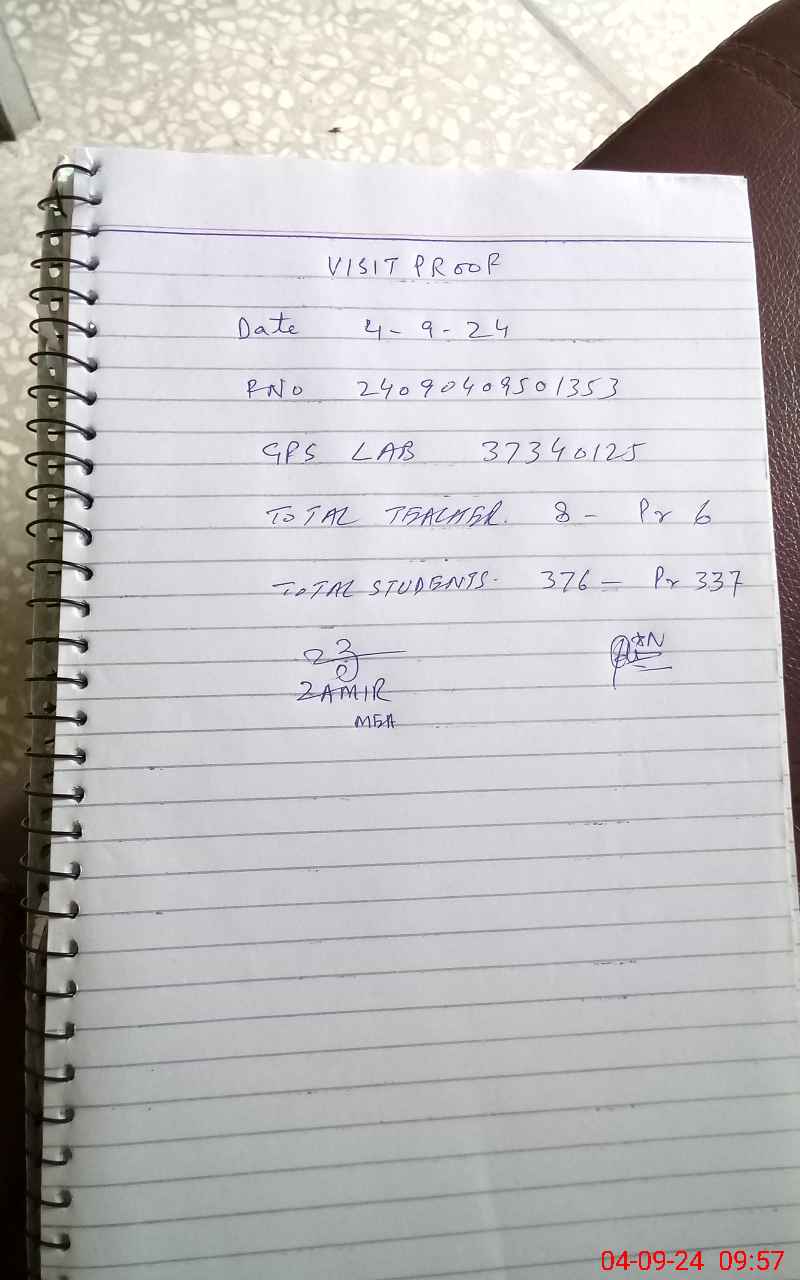 VISIT PROOF
Date 4-9-24
RNo 24090409501353
GPS LAB 37340125
TOTAL TEACHER. 8 - Pr 6
TOTAL STUDENTS. 376 - Pr 337
ZAMIR
MEA
04-09-24 09:57